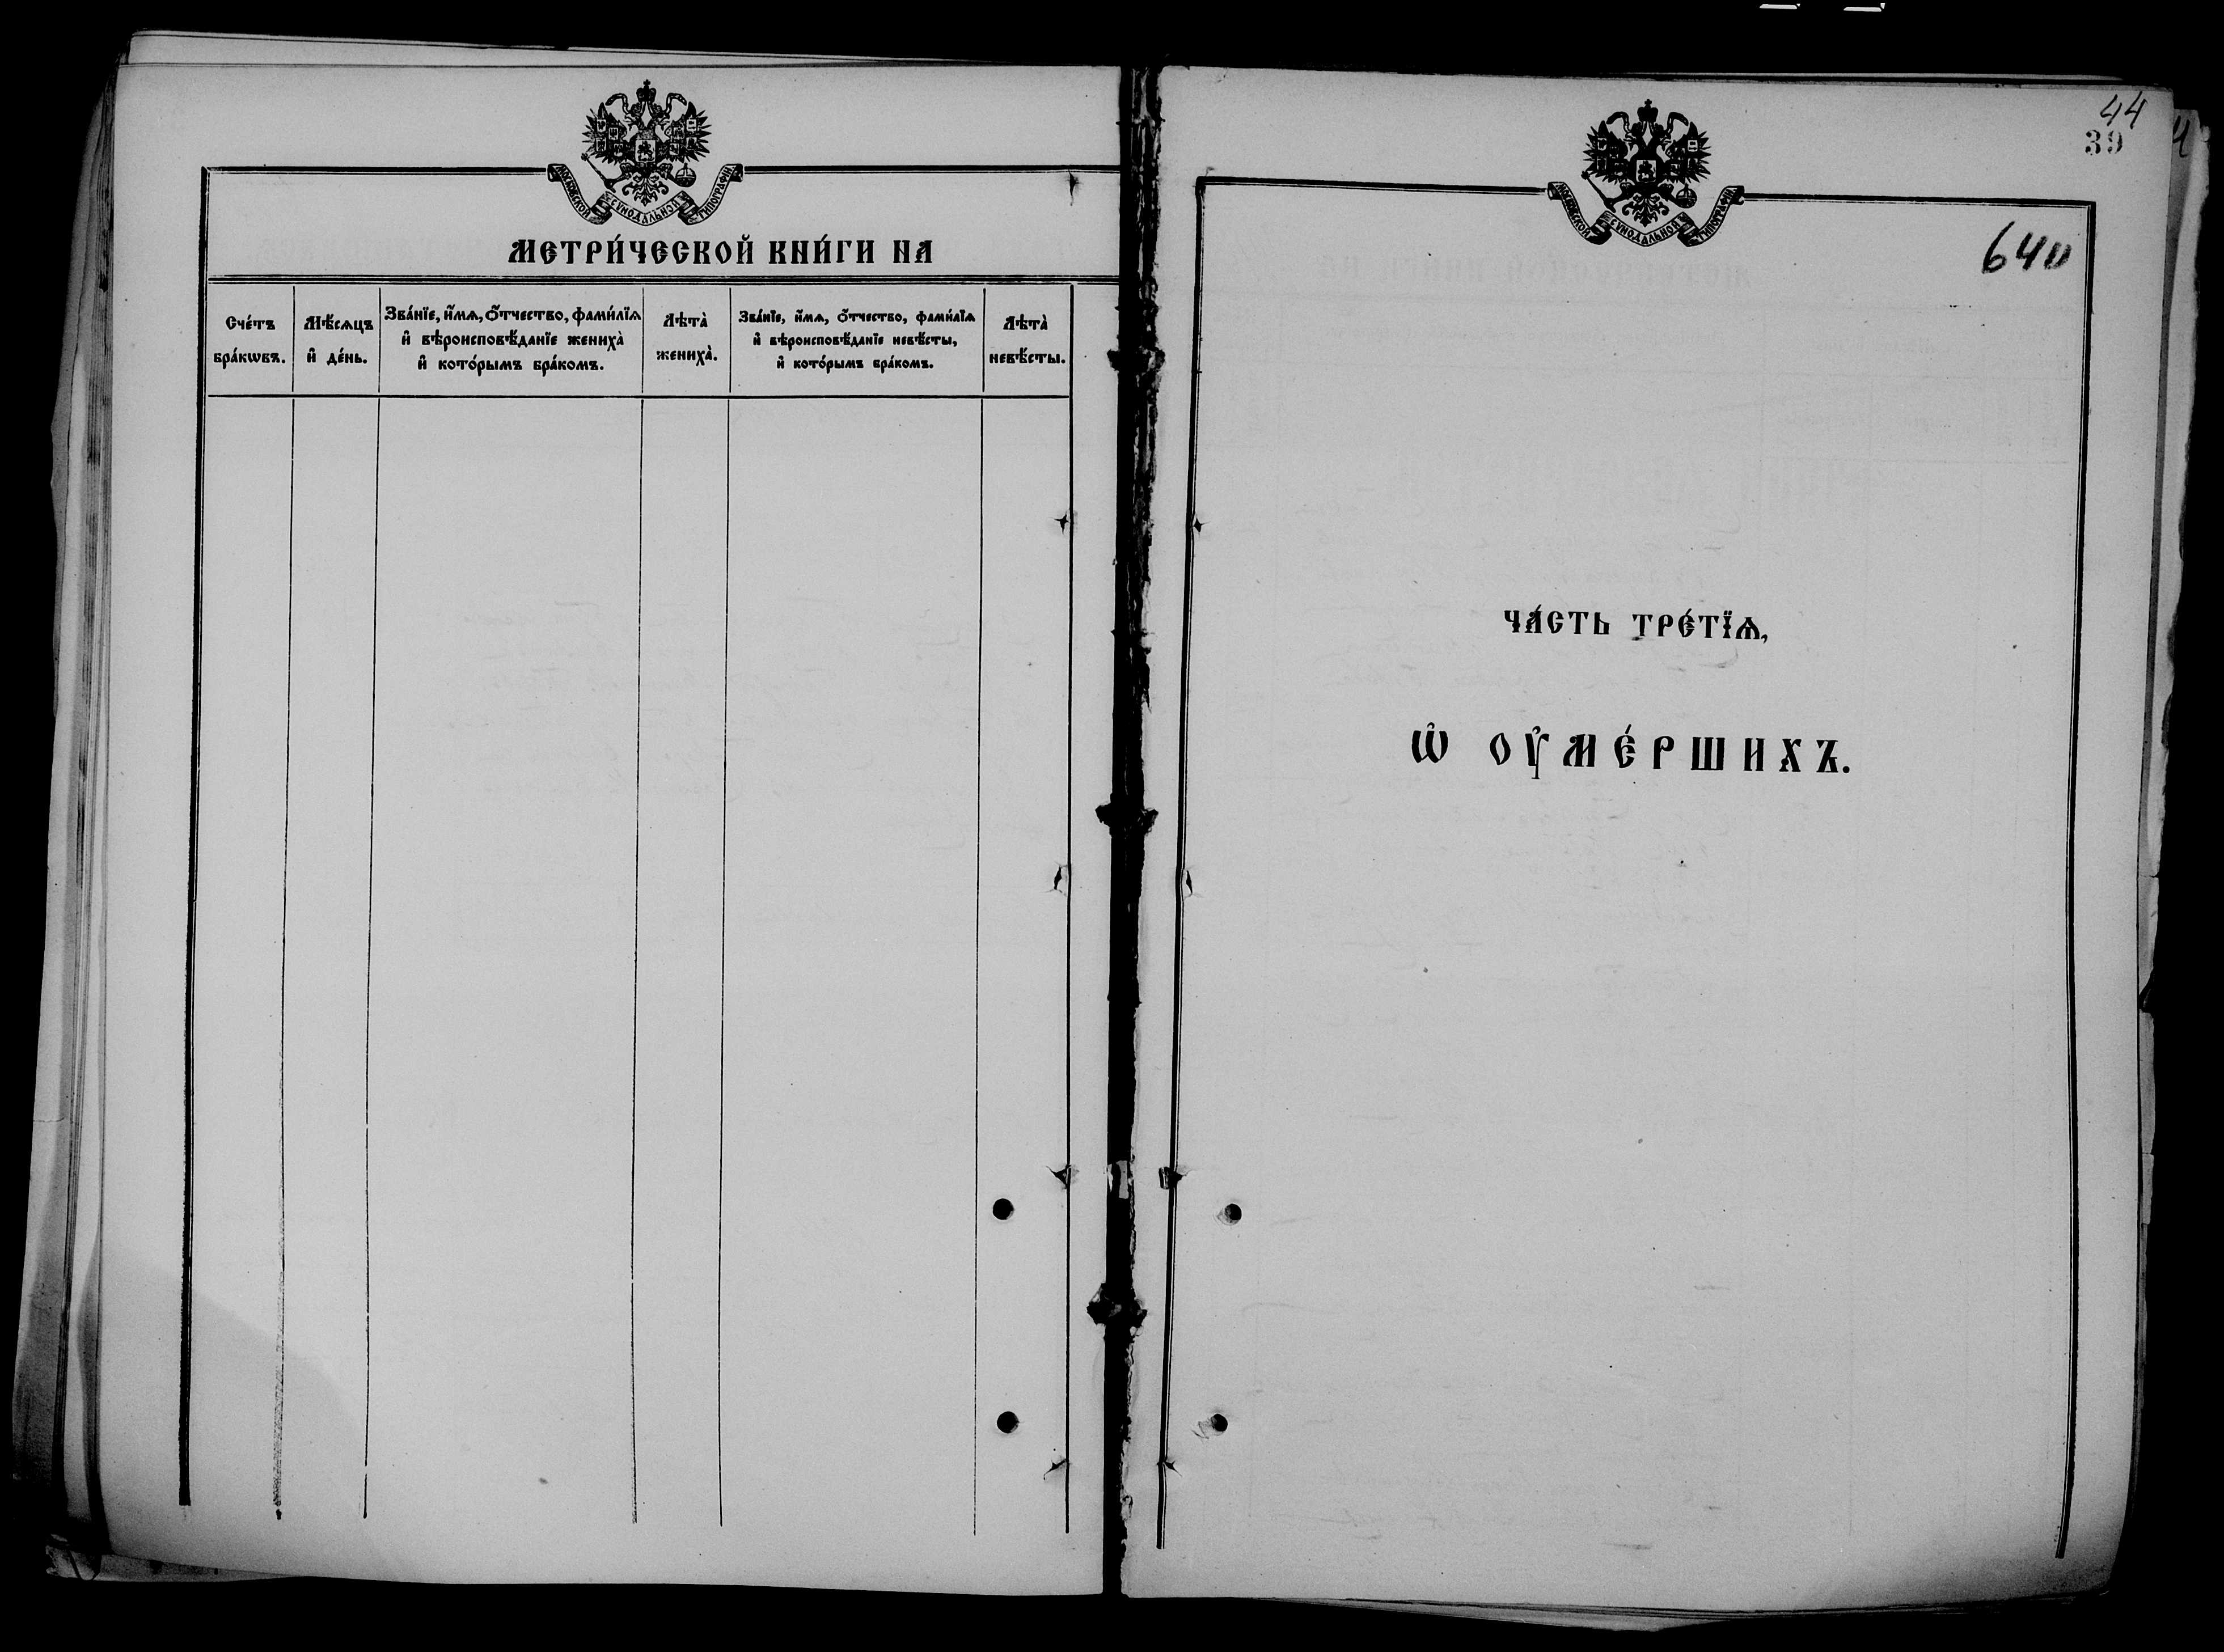 МОСКОВСКОЙ СѴНОДАЛЬНОЙ ТИПОГРАФІИ
МЕТРИ́ЧЕСКОЙ КНИ́ГИ НА
Сче́тъ
бра́кѡвъ.
Мѣ́сѧцъ
и҆ де́нь.
Зва́нїе, и҆́мѧ, ѻ҆́тчество, фами́лїѧ
и҆ вѣроисповѣ́данїе жениха̀
и҆ кото́рымъ бра́комъ.
Лѣта̀
жениха̀.
Зва́нїе, и҆́мѧ, ѻ҆́тчество, фами́лїѧ
и҆ вѣроисповѣ́данїе невѣ́сты,
и҆ кото́рымъ бра́комъ.
Лѣта̀
невѣ́сты.
44
39
МОСКОВСКОЙ СѴНОДАЛЬНОЙ ТИПОГРАФІИ
ЧА́СТЬ ТРЕ́ТЇѦ,
Ѡ҆ ОУ҆МЕ́РШИХЪ.